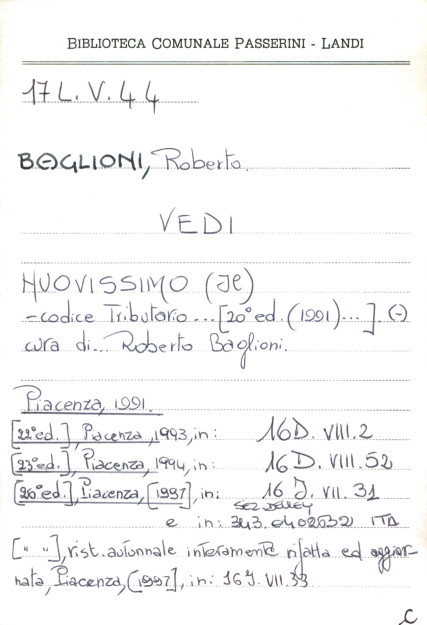 BIBLIOTECA COMUNALE PASSERINI - LANDI
17 L. V. 44
BAGLIONI, Roberto.
VEDI
NUOVISSIMO (Il)
-codice Tributario... [20ª ed. (1991)...]. (-)
cura di... Roberto Baglioni.
Piacenza, 1991.
[22ª ed.], Piacenza, 1993, in: 16D. VIII. 2
[23ª ed.], Piacenza, 1994, in: 16 D. VIII. 52
[26ª ed.], Piacenza, [1997], in: 16 J. VII. 31
SEZ DEWEY
e in: 343. 0402632 ITA
[" "], rist. autunnale interamente rifatta ed aggior-
nata, Piacenza, [1997], in: 16J. VII. 33
C